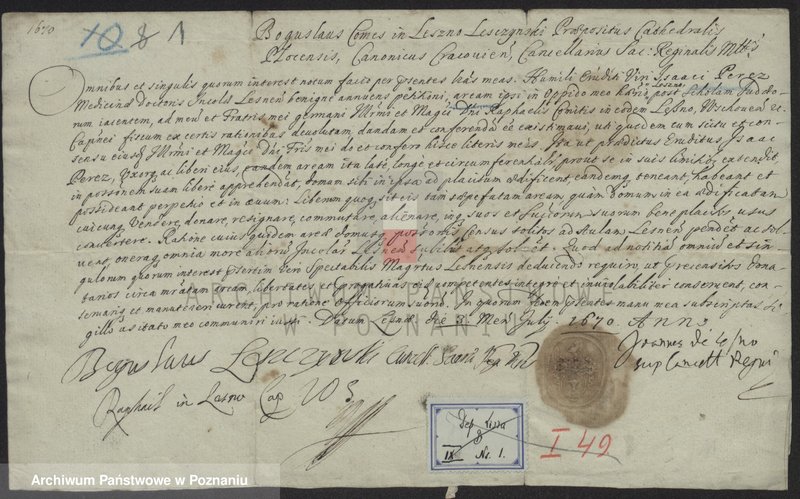 1670
10 8 1
Boguslaus Comes in Leszno Lesczynski Præpositus Cathedralis
Plocensis, Canonicus Cracovien, Cancellarius Sac: Reginalis Mttis
Omnibus et singulis quorum interest notum facio per præsentes has meas. Humili Eruditi Viri Isaaci Perez
Medicinæ Doctoris Incolæ Lesnen benigne annuens petitioni, aream ipsi in Oppido meo post Scholam Judæo-
rum iacentem, ad meum et Fratris mei germani Illrmi et Magci Dni Raphaelis Comitis in eodem Lesno, Wschoven
Capnei fiscum ex certis rationibus devolutam, dandam et conferendam existimavi, uti quidem cum scitu et con-
sensu eiusd Illrmi et Magci Dni Fris mei do et confero hisce literis meis. Ita ut prædictus Eruditus Isaac
Perez, Uxorq ac liberi eius, eandem aream ita late, longe et circumferentialr, prout se in suis limitibus extendit,
in possnem suam libere apprehendat, domum sibi in ipsa ad placitum ædificent, eandemq teneant, habeant et
possideant perpetuo et in ævum: Liberum quoq sit eis tam sæpefatam aream, quam Domum in ea ædificatam
cuicunq vendere, donare, resignare, commutare, alienare, inq suos et suorum bene placitos usus
convertere. Ratione cuius quidem areæ domusq possessoris census solitos ad Aulam Lesnen pendet ac sol-
vent, oneraq omnia more aliorum Incolar Lesnen Quod ad notitiam omnium et sin-
gulorum quorum interest præsertim vero Spectabilis Magrtus Lesnensis deducendo requiro, ut præcensitos dona-
tarios circa præmratam aream, libertates et prærogativas eis competentes integre et inviolabiliter conservent, con-
servariq et manuteneri curent, pro ratione Officiorum suorum. In quorum fidem præsentes manu mea subscriptas Si-
gillo usitato meo communiri iussi. Datum die Mens July. 1670. Anno
Boguslaus Leszczynski Cancell: Sacræ Reg
Joannes de Lesno
Sup Cancell Regni
Raphael in Lesno
Dep. Lissa
B
IX Nr. 1.
I 49
ARCHIWUM PAŃSTWOWE
W POZNANIU
Archiwum Państwowe w Poznaniu